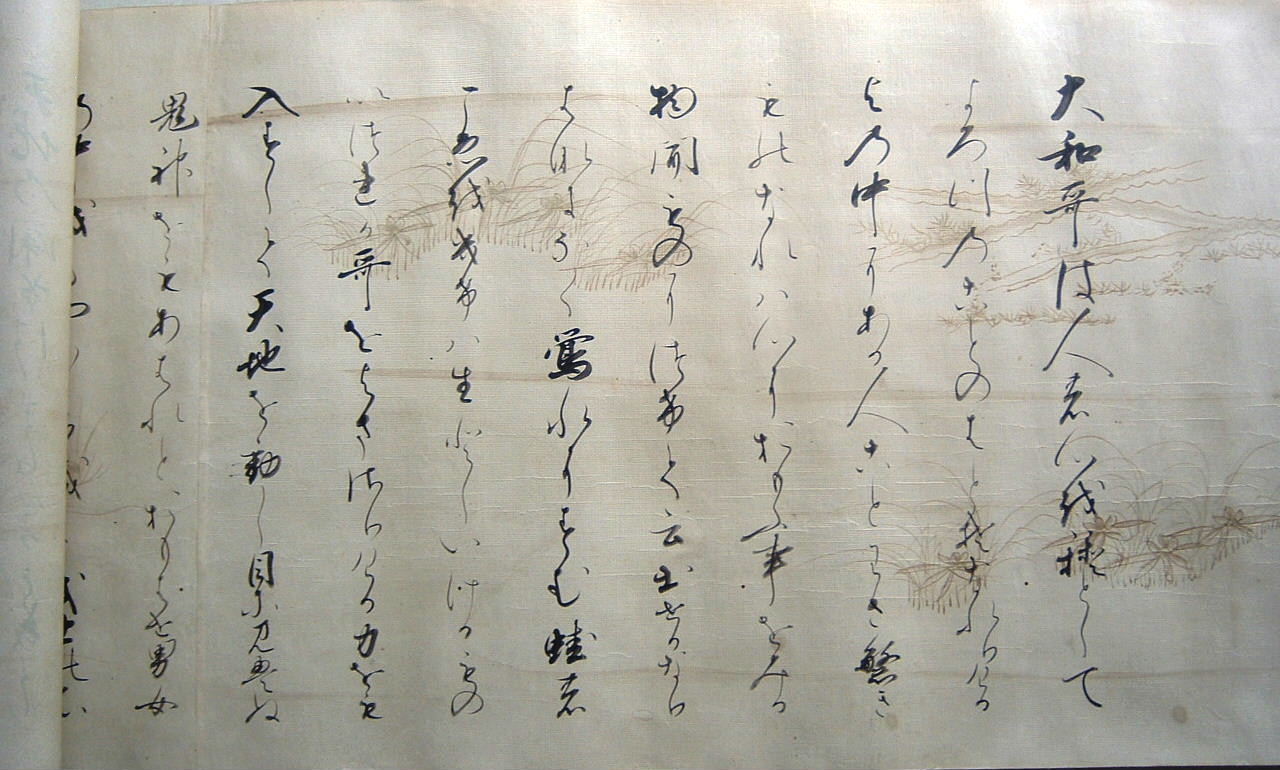 大和哥は人の心を種として
よろつのことのはとそなれりける
よの中にある人ことわさ繁き
ものなれは心におもふ事をみる
物聞ものにつけて云出せるなり
はなになく鶯水にすむ蛙の
こゑをきけは生としいけるもの
いつれか哥をよまさりける力をも
入すして天地を動し目に見えぬ
鬼神をもあはれとおもはせ男女